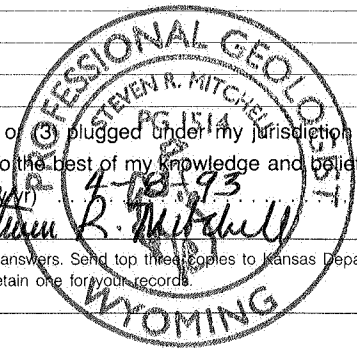 PROFESSIONAL GEOLOGIST
STEVEN R. MITCHELL
PG 1514
or (3) plugged under my jurisdiction
to the best of my knowledge and belief
yr) 4-8-93
R. Mitchell
answers. Send top three copies to Kansas Depa
etain one for your records.
WYOMING